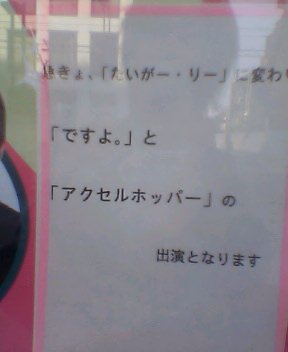 急きょ、「たいがー・りー」に変わり
「ですよ。」と
「アクセルホッパー」の
出演となります